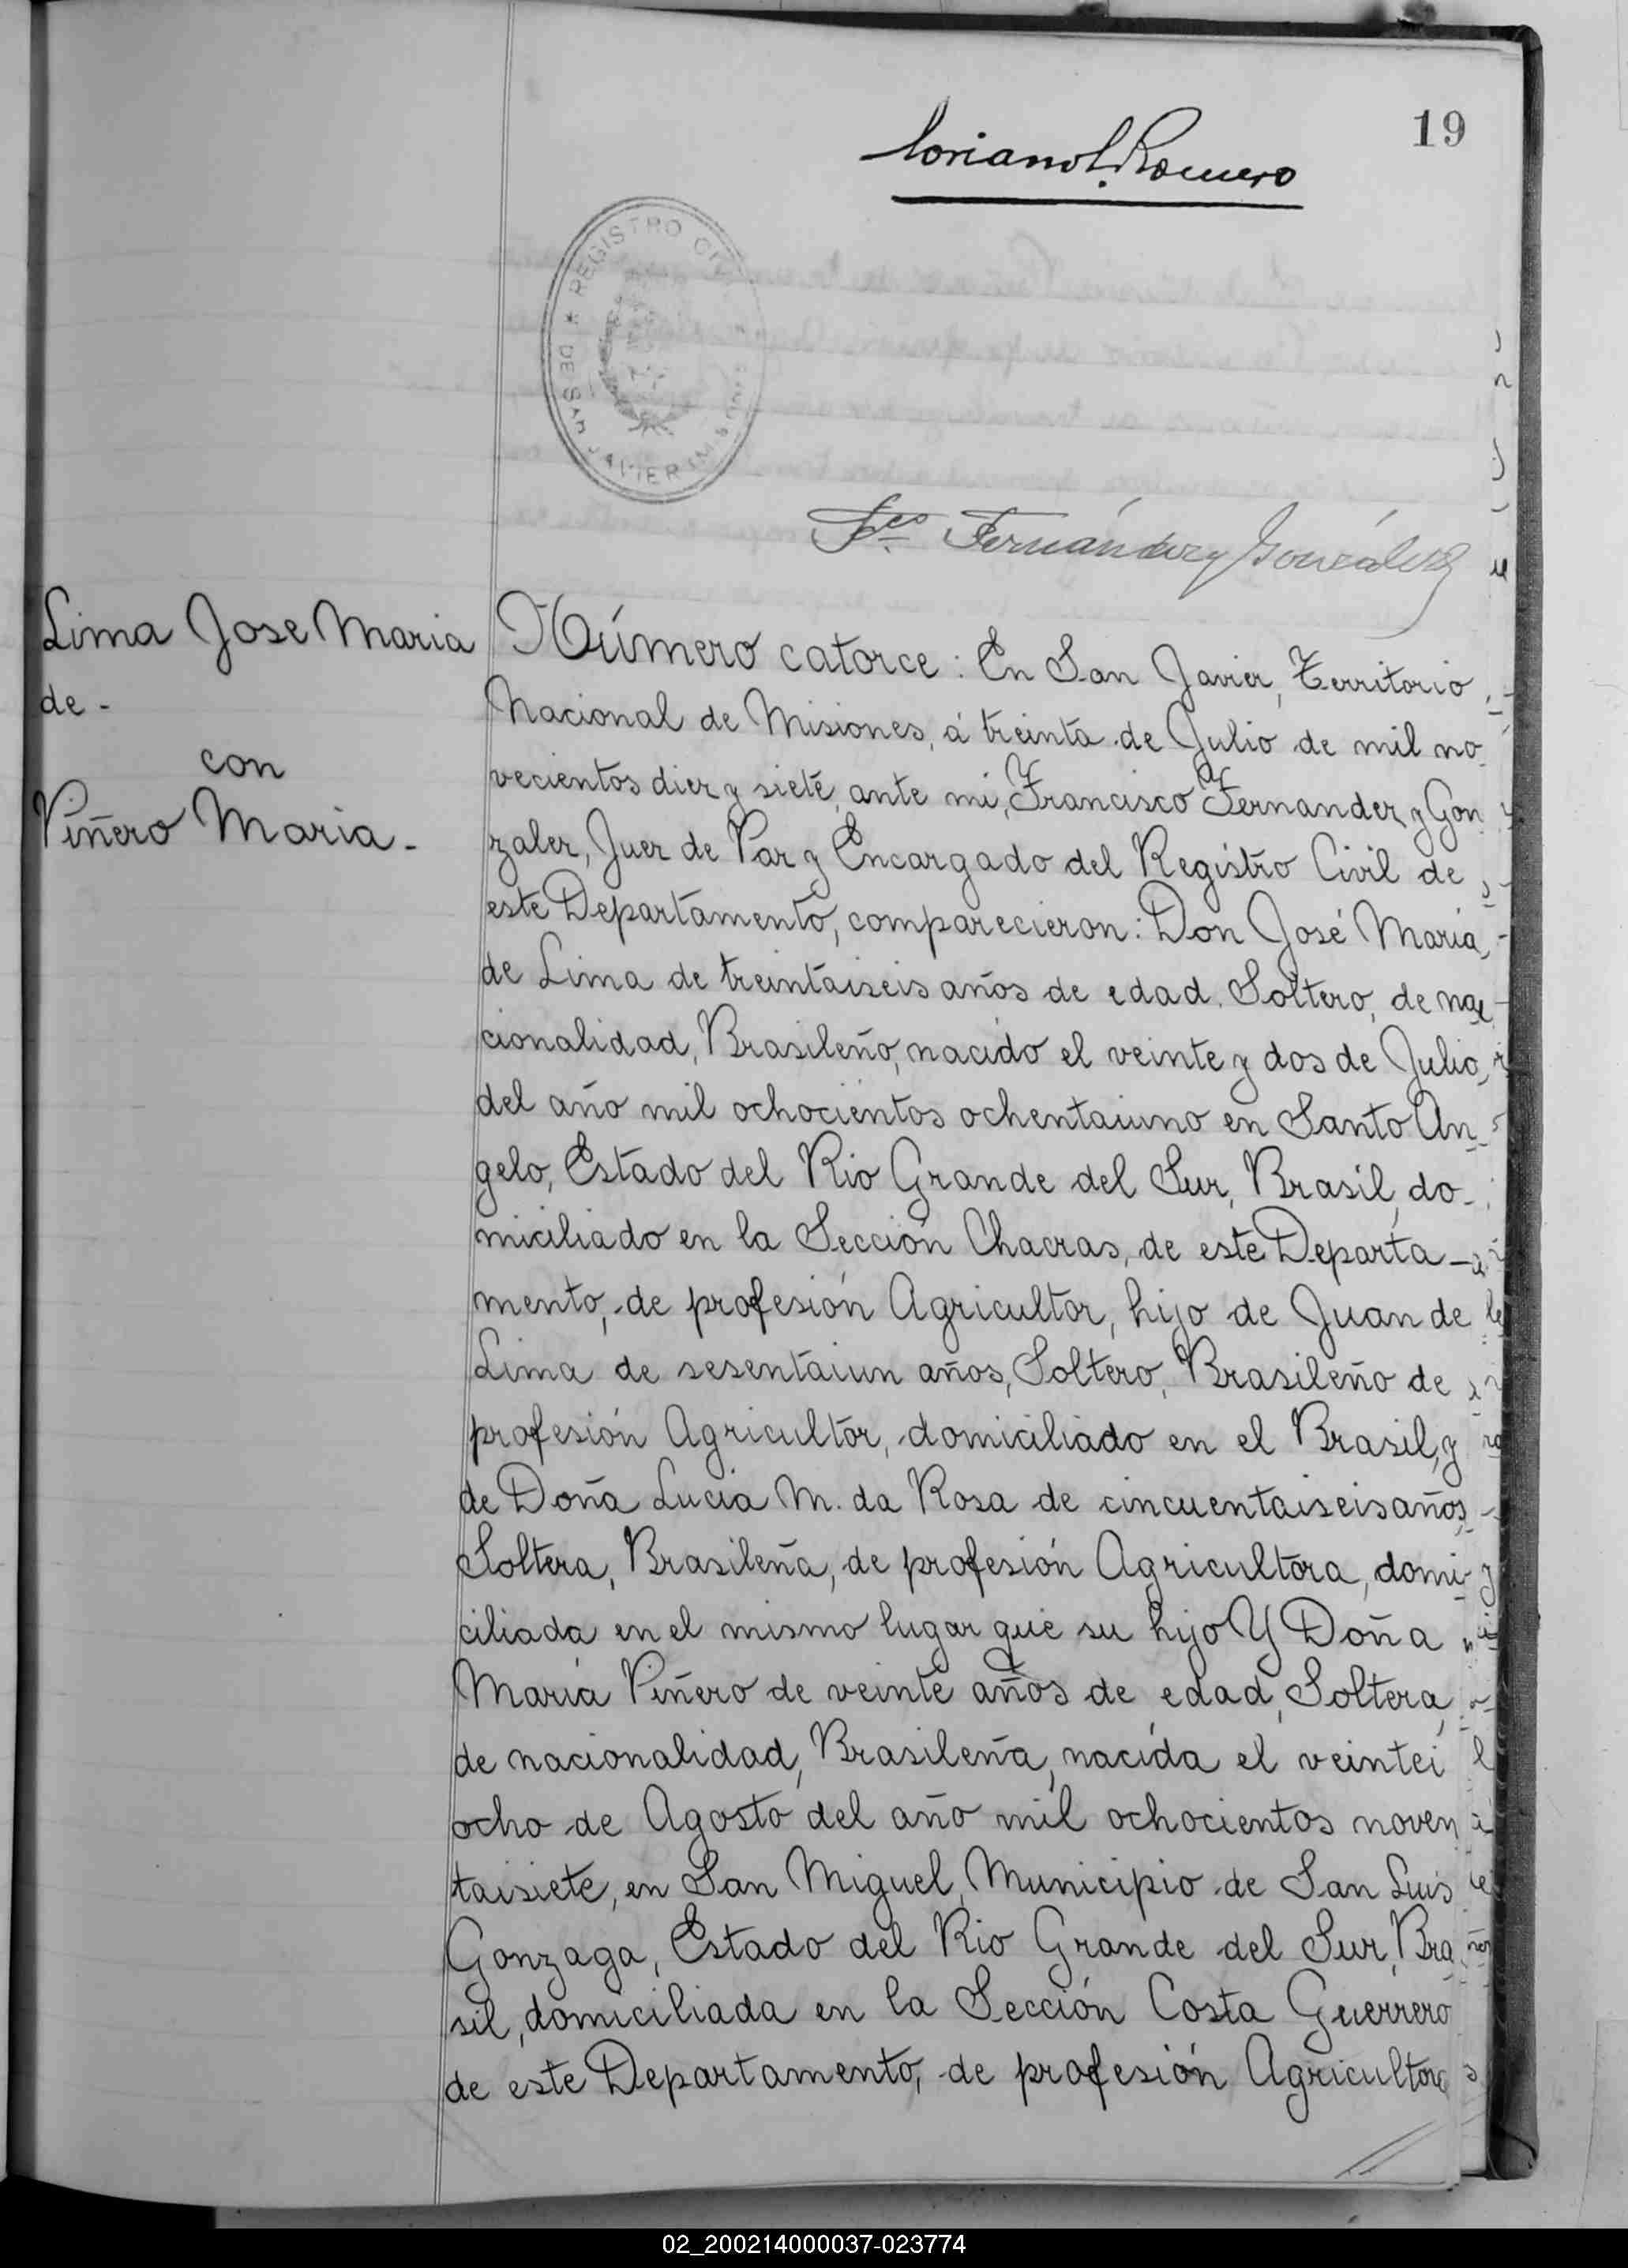 19
Coriano L. Romero
REGISTRO CIVIL
DE SAN JAVIER MISIONES
Fco. Fernández y González
Lima Jose Maria
de -
con
Piñero Maria -
Número catorce: En San Javier, Territorio
Nacional de Misiones, á treinta de Julio de mil no-
vecientos diez y siete, ante mi, Francisco Fernandez y Gon
zalez, Juez de Paz y Encargado del Registro Civil de
este Departamento, comparecieron: Don José María
de Lima de treintaiseis años de edad, Soltero, de na-
cionalidad, Brasileño, nacido el veinte y dos de Julio
del año mil ochocientos ochentaiuno en Santo An-
gelo, Estado del Rio Grande del Sur, Brasil, do-
miciliado en la Sección Chacras, de este Departa-
mento, de profesión Agricultor, hijo de Juan de
Lima de sesentaiun años, Soltero, Brasileño de
profesión Agricultor, domiciliado en el Brasil, y
de Doña Lucia M. da Rosa de cincuentaiseis años,
Soltera, Brasileña, de profesión Agricultora, domi-
ciliada en el mismo lugar que su hijo Y Doña
María Piñero de veinte años de edad, Soltera,
de nacionalidad, Brasileña, nacída el veintei
ocho de Agosto del año mil ochocientos noven
taisiete, en San Miguel, Municipio de San Luis
Gonzaga, Estado del Rio Grande del Sur, Bra
sil, domiciliada en la Sección Costa Guerrero
de este Departamento, de profesión Agricultora
02_200214000037-023774